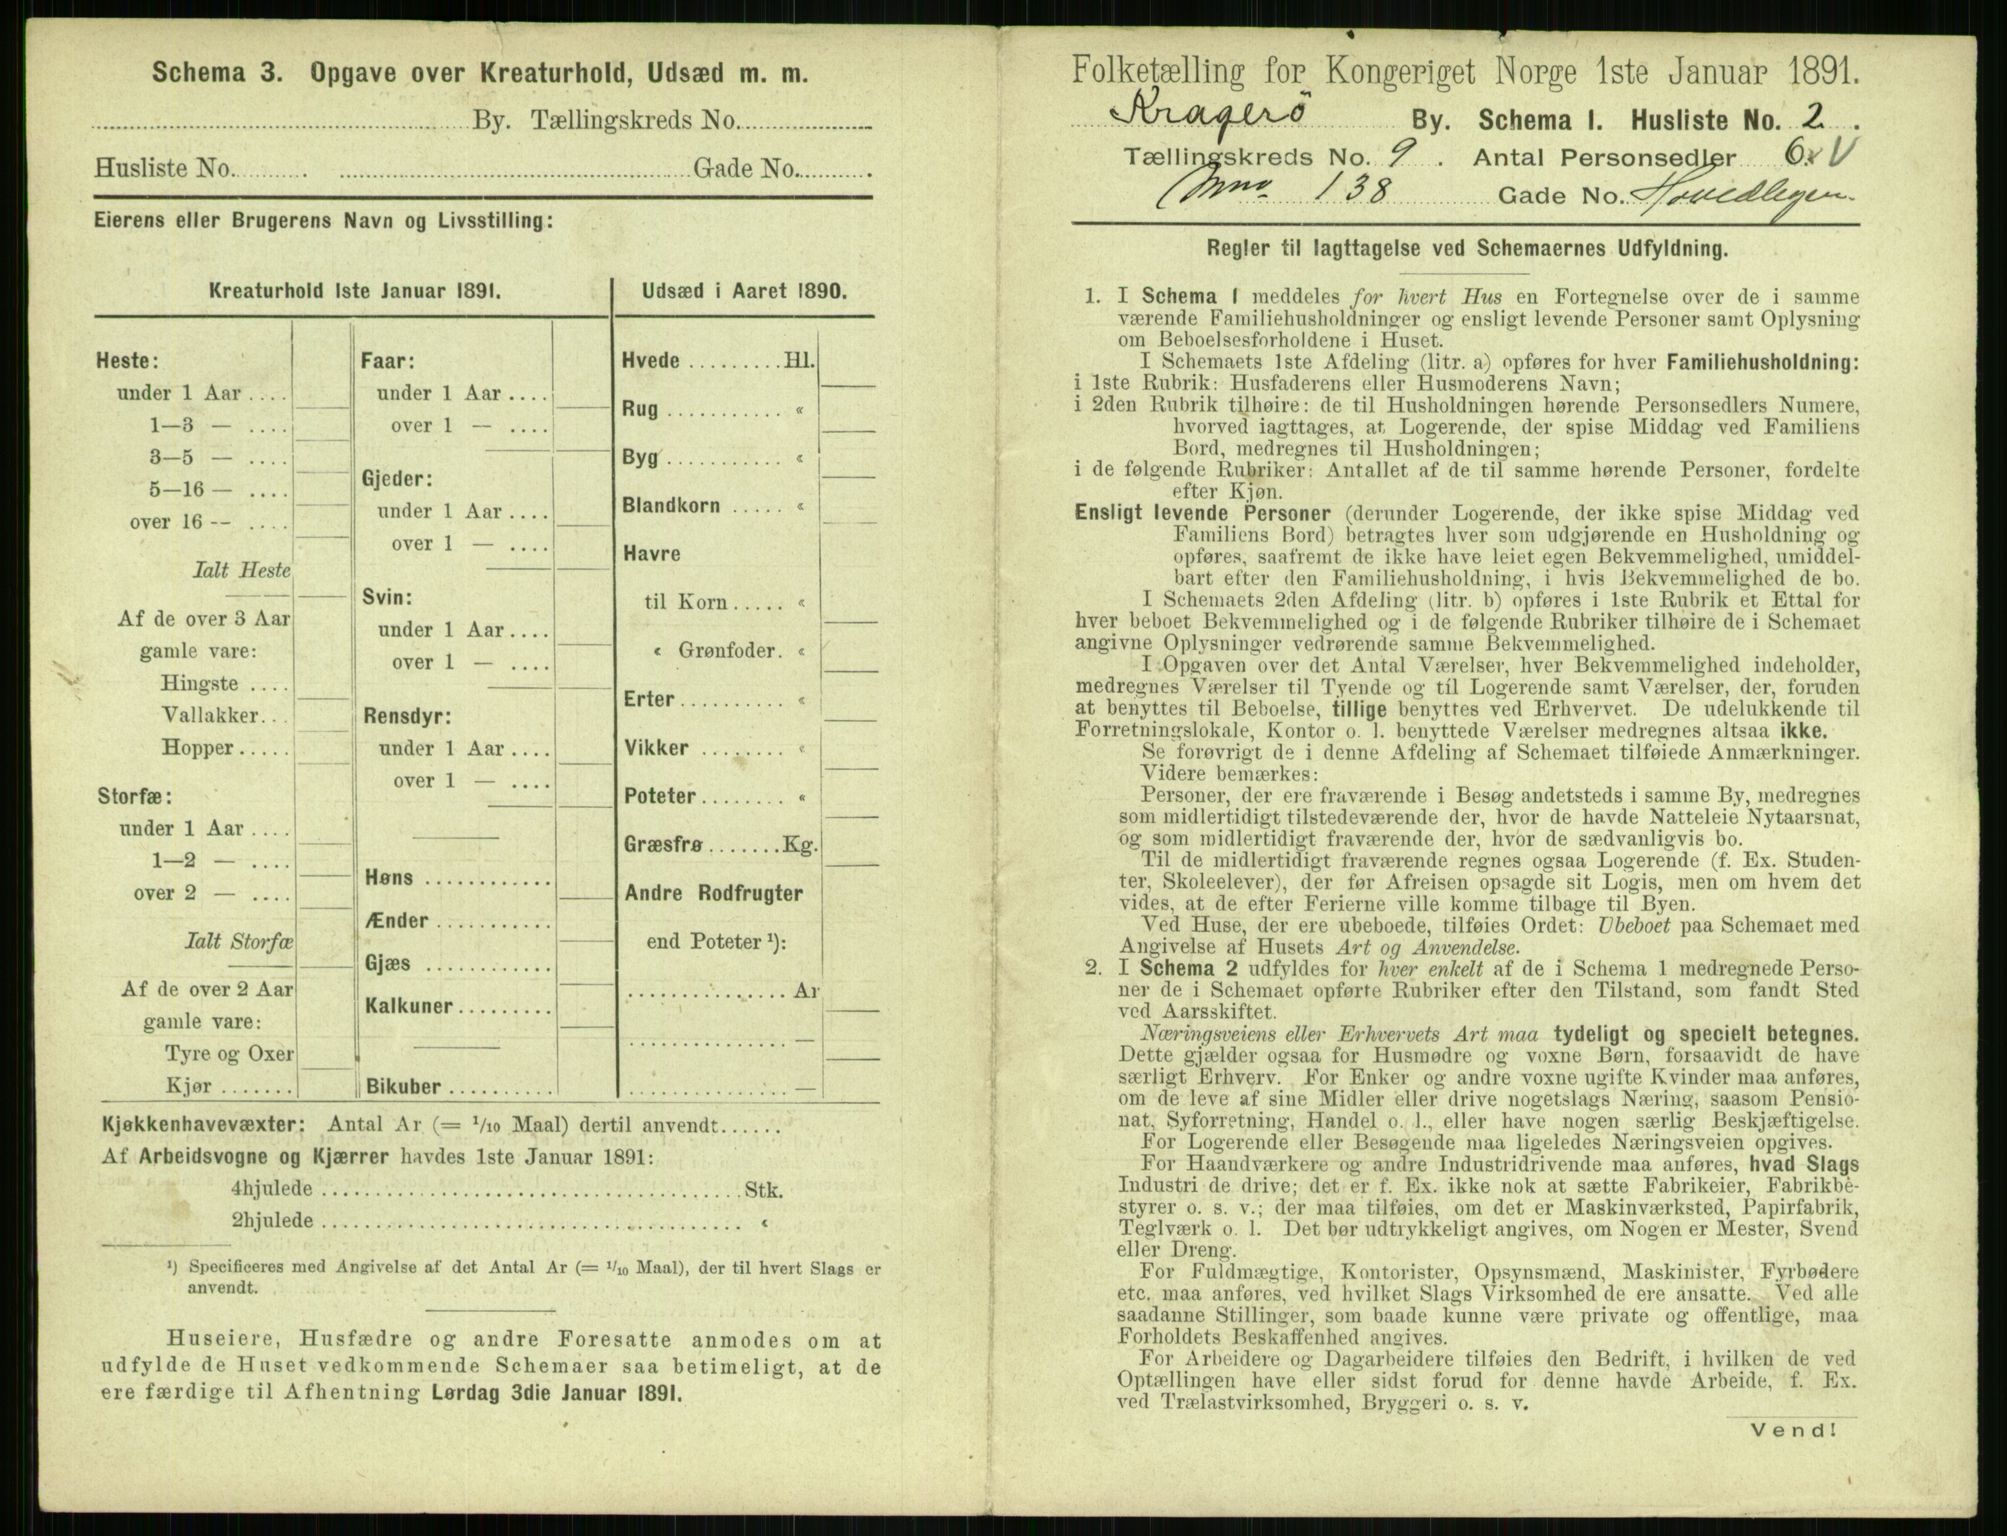 Schema 3. Opgave over Kreaturhold, Udsæd m. m.
By. Tællingskreds No.
Husliste No. Gade No.
Eierens eller Brugerens Navn og Livsstilling:
Kreaturhold 1ste Januar 1891.
Heste:
under 1 Aar
1—3 —
3—5 —
5—16 —
over 16 --
Ialt Heste
Af de over 3 Aar
gamle vare:
Hingste
Vallakker
Hopper
Storfæ:
under 1 Aar
1—2 —
over 2 —
Ialt Storfæ
Af de over 2 Aar
gamle vare:
Tyre og Oxer
Kjør
Faar:
under 1 Aar
over 1 —
Gjeder:
under 1 Aar
over 1 —
Svin:
under 1 Aar
over 1 —
Rensdyr:
under 1 Aar
over 1 —
Høns
Ænder
Gjæs
Kalkuner
Bikuber
Udsæd i Aaret 1890.
Hvede Hl.
Rug «
Byg «
Blandkorn «
Havre
til Korn «
« Grønfoder. «
Erter «
Vikker «
Poteter «
Græsfrø Kg.
Andre Rodfrugter
end Poteter ¹):
Ar
—
—
Kjøkkenhavevæxter: Antal Ar (= 1/10 Maal) dertil anvendt
Af Arbeidsvogne og Kjærrer havdes 1ste Januar 1891:
4hjulede Stk.
2hjulede «
¹) Specificeres med Angivelse af det Antal Ar (= 1/10 Maal), der til hvert Slags er
anvendt.
Huseiere, Husfædre og andre Foresatte anmodes om at
udfylde de Huset vedkommende Schemaer saa betimeligt, at de
ere færdige til Afhentning Lørdag 3die Januar 1891.
Folketælling for Kongeriget Norge 1ste Januar 1891.
Kragerö By. Schema I. Husliste No. 2.
Tællingskreds No. 9. Antal Personsedler 6. V
138 Gade No.
Regler til Iagttagelse ved Schemaernes Udfyldning.
1. I Schema I meddeles for hvert Hus en Fortegnelse over de i samme
værende Familiehusholdninger og ensligt levende Personer samt Oplysning
om Beboelsesforholdene i Huset.
I Schemaets 1ste Afdeling (litr. a) opføres for hver Familiehusholdning:
i 1ste Rubrik: Husfaderens eller Husmoderens Navn;
i 2den Rubrik tilhøire: de til Husholdningen hørende Personsedlers Numere,
hvorved iagttages, at Logerende, der spise Middag ved Familiens
Bord, medregnes til Husholdningen;
i de følgende Rubriker: Antallet af de til samme hørende Personer, fordelte
efter Kjøn.
Ensligt levende Personer (derunder Logerende, der ikke spise Middag ved
Familiens Bord) betragtes hver som udgjørende en Husholdning og
opføres, saafremt de ikke have leiet egen Bekvemmelighed, umiddel-
bart efter den Familiehusholdning, i hvis Bekvemmelighed de bo.
I Schemaets 2den Afdeling (litr. b) opføres i 1ste Rubrik et Ettal for
hver beboet Bekvemmelighed og i de følgende Rubriker tilhøire de i Schemaet
angivne Oplysninger vedrørende samme Bekvemmelighed.
I Opgaven over det Antal Værelser, hver Bekvemmelighed indeholder,
medregnes Værelser til Tyende og til Logerende samt Værelser, der, foruden
at benyttes til Beboelse, tillige benyttes ved Erhvervet. De udelukkende til
Forretningslokale, Kontor o. l. benyttede Værelser medregnes altsaa ikke.
Se forøvrigt de i denne Afdeling af Schemaet tilføiede Anmærkninger.
Videre bemærkes:
Personer, der ere fraværende i Besøg andetsteds i samme By, medregnes
som midlertidigt tilstedeværende der, hvor de havde Natteleie Nytaarsnat,
og som midlertidigt fraværende der, hvor de sædvanligvis bo.
Til de midlertidigt fraværende regnes ogsaa Logerende (f. Ex. Studen-
ter, Skoleelever), der før Afreisen opsagde sit Logis, men om hvem det
vides, at de efter Ferierne ville komme tilbage til Byen.
Ved Huse, der ere ubeboede, tilføies Ordet: Ubeboet paa Schemaet med
Angivelse af Husets Art og Anvendelse.
2. I Schema 2 udfyldes for hver enkelt af de i Schema 1 medregnede Perso-
ner de i Schemaet opførte Rubriker efter den Tilstand, som fandt Sted
ved Aarsskiftet.
Næringsveiens eller Erhvervets Art maa tydeligt og specielt betegnes.
Dette gjælder ogsaa for Husmødre og voxne Børn, forsaavidt de have
særligt Erhverv. For Enker og andre voxne ugifte Kvinder maa anføres,
om de leve af sine Midler eller drive nogetslags Næring, saasom Pensio-
nat, Syforretning, Handel o. l., eller have nogen særlig Beskjæftigelse.
For Logerende eller Besøgende maa ligeledes Næringsveien opgives.
For Haandværkere og andre Industridrivende maa anføres, hvad Slags
Industri de drive; det er f. Ex. ikke nok at sætte Fabrikeier, Fabrikbe-
styrer o. s. v.; der maa tilføies, om det er Maskinværksted, Papirfabrik,
Teglværk o. l. Det bør udtrykkeligt angives, om Nogen er Mester, Svend
eller Dreng.
For Fuldmægtige, Kontorister, Opsynsmænd, Maskinister, Fyrbødere
etc. maa anføres, ved hvilket Slags Virksomhed de ere ansatte. Ved alle
saadanne Stillinger, som baade kunne være private og offentlige, maa
Forholdets Beskaffenhed angives.
For Arbeidere og Dagarbeidere tilføies den Bedrift, i hvilken de ved
Optællingen have eller sidst forud for denne havde Arbeide, f. Ex.
ved Trælastvirksomhed, Bryggeri o. s. v.
Vend!